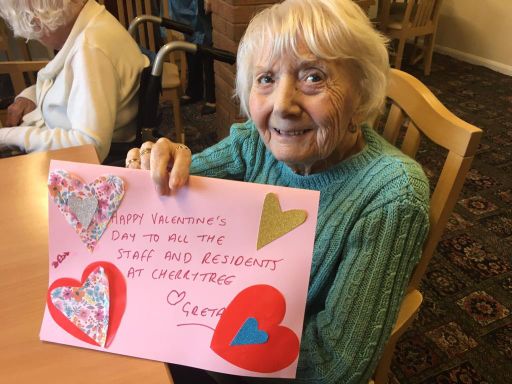 HAPPY VALENTINE'S
DAY TO ALL THE
STAFF AND RESIDENTS
AT CHERRYTREE
♡GRETA